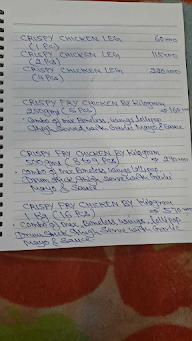 CRISPY CHICKEN LEG 60=00
(1 Pc)
CRISPY CHICKEN LEG 115=00
(2 Pcs)
CRISPY CHICKEN LEG 220=00
(4 Pcs)
CRISPY FRY CHICKEN By kilogram
250gms (5 Pcs) => 160=00
- Combo of max Boneless, wings, lollipop,
Thigh Served with Garlic Mayo & Sauce
CRISPY FRY CHICKEN By kilogram
500gms (8 to 9 Pcs) => 290=00
- Combo of max Boneless wings, lollipop,
Drum Stick, thigh Serve with Garlic
Mayo & Sauce
CRISPY FRY CHICKEN By kilogram
1 kg (16 Pcs) => 570=00
- Combo of max Boneless, wings, lollipop
Drum Stick, thigh Serve with Garlic
Mayo & Sauce